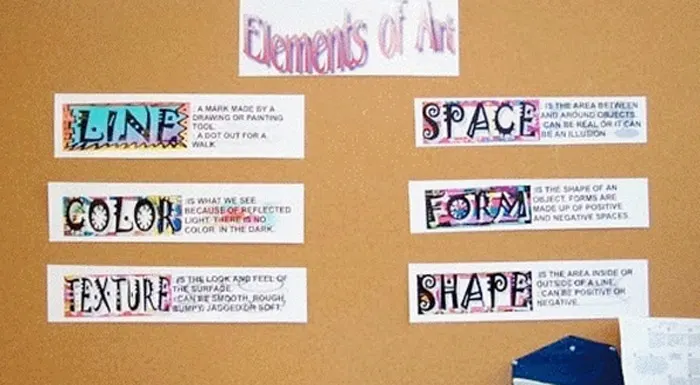 Elements of Art
LINE
A MARK MADE BY A
DRAWING OR PAINTING
TOOL.
A DOT OUT FOR A
WALK
COLOR
IS WHAT WE SEE
BECAUSE OF REFLECTED
LIGHT. THERE IS NO
COLOR IN THE DARK.
TEXTURE
IS THE LOOK AND FEEL OF
THE SURFACE.
CAN BE SMOOTH, ROUGH,
BUMPY, JAGGED OR SOFT.
SPACE
IS THE AREA BETWEEN
AND AROUND OBJECTS.
CAN BE REAL OR IT CAN
BE AN ILLUSION
FORM
IS THE SHAPE OF AN
OBJECT. FORMS ARE
MADE UP OF POSITIVE
AND NEGATIVE SPACES.
SHAPE
IS THE AREA INSIDE OR
OUTSIDE OF A LINE.
CAN BE POSITIVE OR
NEGATIVE.